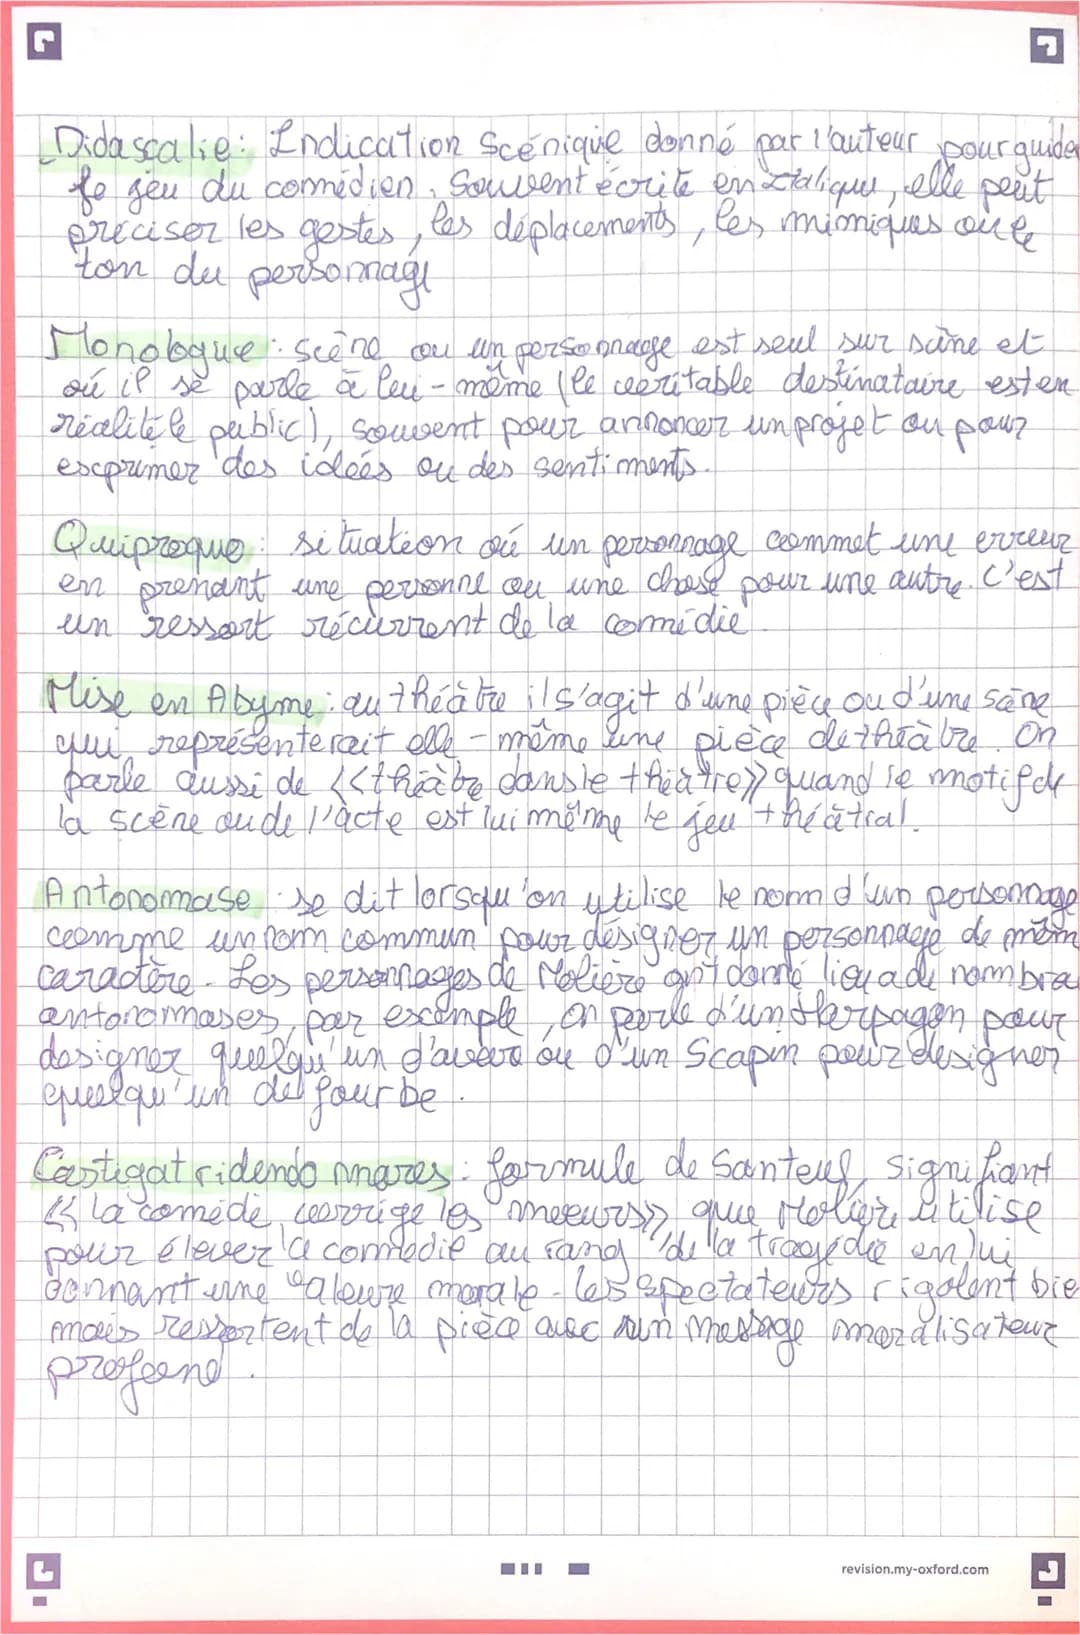 Didascalie: Indication Scénique donné par l'auteur pour guider
le jeu du comédien. Souvent écrite en italique, elle peut
préciser les gestes, les déplacements, les mimiques ou le
ton du personnage
Monologue: scène ou un personnage est seul sur scène et
où il se parle à lui-même (le veritable destinataire est en
réalité le public), souvent pour annoncer un projet ou pour
exprimer des idées ou des sentiments.
Quiproquo: situation où un personnage commet une erreur
en prenant une personne ou une chose pour une autre. C'est
un ressort récurrent de la comédie
Mise en Abyme: au théâtre il s'agit d'une pièce ou d'une scène
qui représenterait elle-même une pièce de théâtre. On
parle aussi de <<théâtre dans le théâtre>> quand le motif de
la scène ou de l'acte est lui même le jeu théâtral.
Antonomase: se dit lorsqu'on utilise le nom d'un personnage
comme un nom commun pour désigner un personnage de mêm
caractère. Les personnages de Molière ont donné lieu a de nombra
antonomases, par exemple, on parle d'un Harpagon pour
designer quelqu'un d'avare ou d'un Scapin pour designer
quelqu'un de fourbe.
Castigat ridendo mores: formule de Santeul, signifiant
<<La comédie corrige les moeurs>> que Molière utilise
pour élever la comédie au rang de la tragédie en lui
donnant une valeure morale. les spectateurs rigolent bie
mais ressortent de la pièce avec un message moralisateur
profond.
revision.my-oxford.com